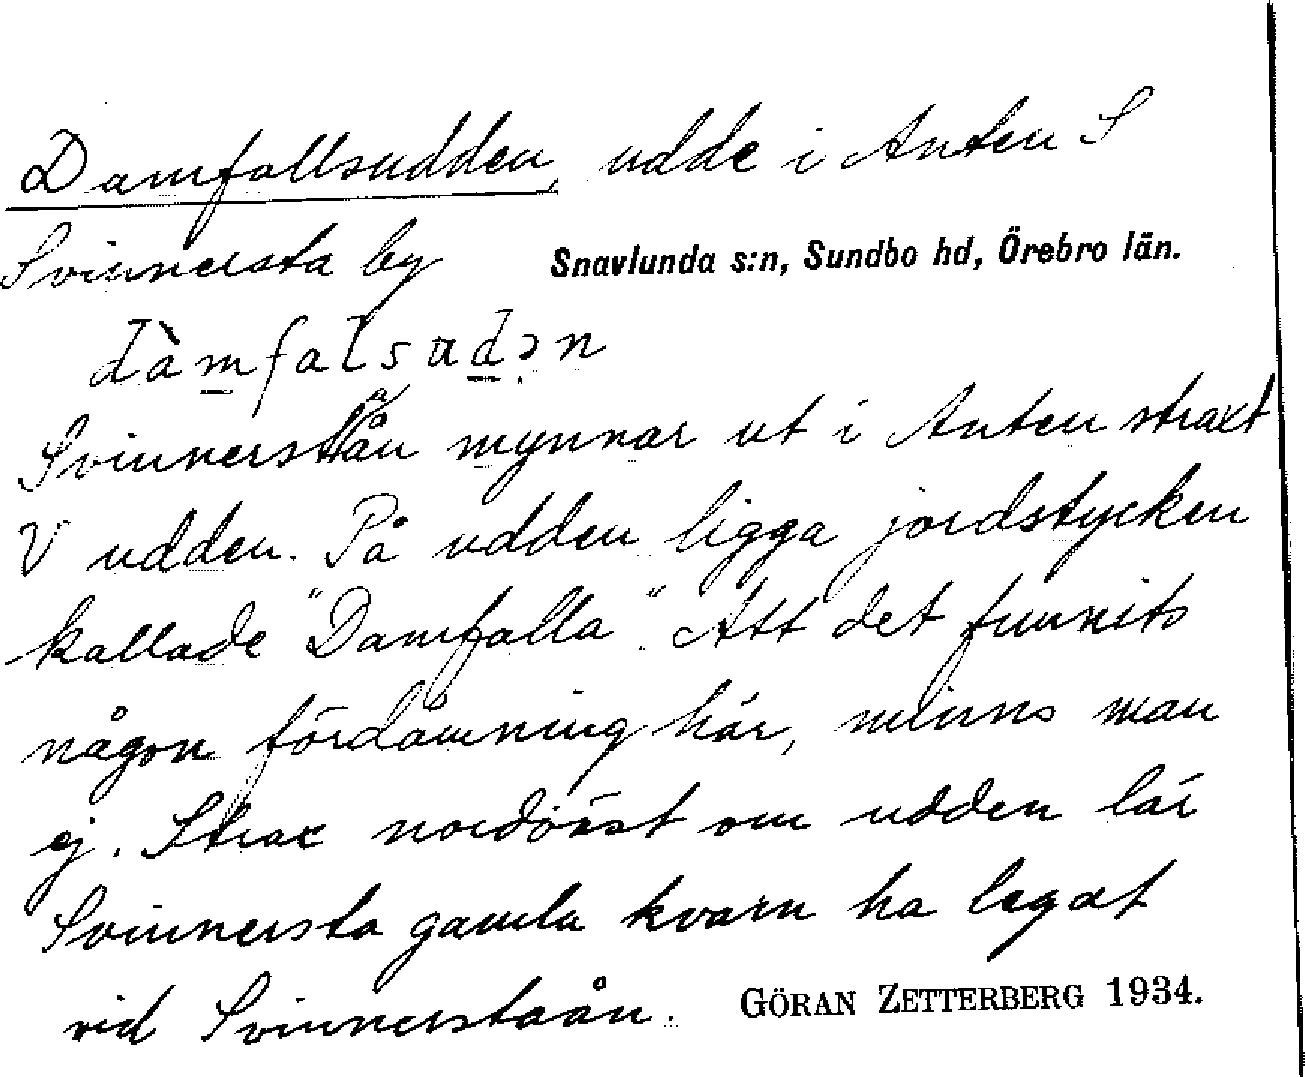 Damfallsudden, udde i Anten S
Svinnersta by Snavlunda s:n, Sundbo hd, Örebro län.
dàmfalsudən
Svinnerstaån mynnar ut i Anten straxt
V udden. På udden ligga jordstycken
kallade "Damfalla". Att det funnits
någon fördämning här, minns man
ej. Strax nordöst om udden lär
Svinnersta gamla kvarn ha legat
vid Svinnerstaån. GÖRAN ZETTERBERG 1934.